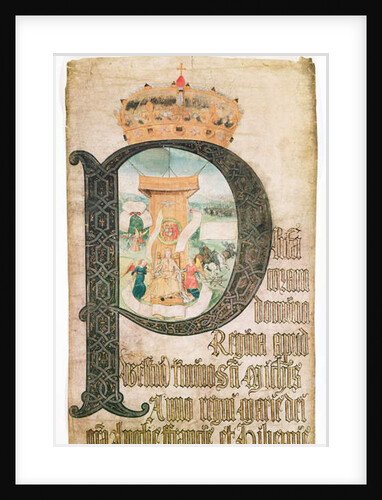 Plita
coram
domina
Regina apud
Anno regni marie dei
gra Anglie francie et Hibernie